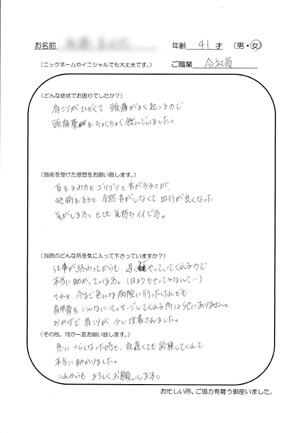 お名前 年齢 41 才 (男・女)
(ニックネームやイニシャルでも大丈夫です。) ご職業 会社員
(どんな症状でお困りでしたか?)
肩こりがひどくて 頭痛がよく起こるので
頭痛薬をちょくちょく飲んでいました。
(施術を受けた感想をお願い致します。)
首をまわすとゴリゴリと音がするのが
施術をすると 全然音がしなくて 血行が良くなった
気がします。とても 気持ちイイです。
(当院のどんな所を気に入って下さっていますか?)
仕事が終わってからも 遅くまでやってくれてるので
本当に助かっています。
それと 今まで色んな病院に行ったけれども
こんなにマッサージしてくれる所は他にありません。
おかげで 肩こりが 改善されました。
(その他、何か一言お願い致します。)
急につらくなった時も、夜遅くでも診察してくれて
本当に助かりました。
これからも よろしくお願いします。
お忙しい所、ご協力有難う御座いました。